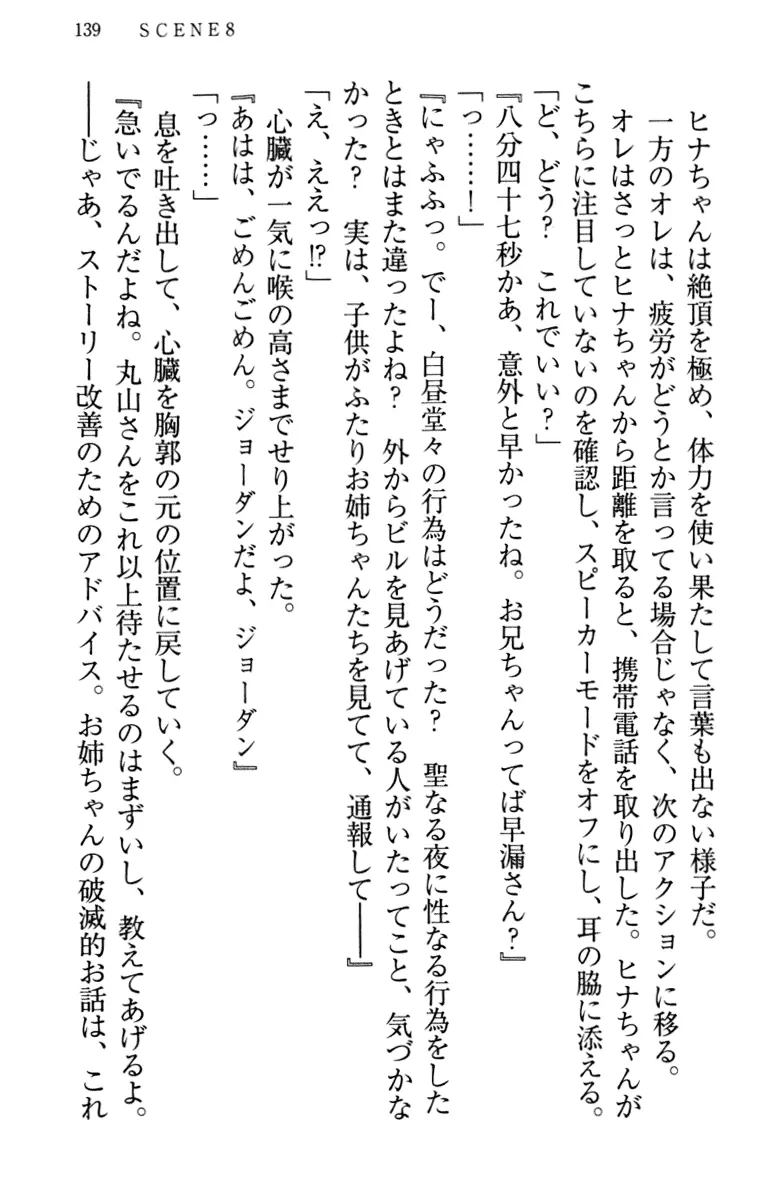 139 SCENE8
ヒナちゃんは絶頂を極め、体力を使い果たして言葉も出ない様子だ。
一方のオレは、疲労がどうとか言ってる場合じゃなく、次のアクションに移る。
オレはさっとヒナちゃんから距離を取ると、携帯電話を取り出した。ヒナちゃんが
こちらに注目していないのを確認し、スピーカーモードをオフにし、耳の脇に添える。
「ど、どう？　これでいい？」
『八分四十七秒かあ、意外と早かったね。お兄ちゃんってば早漏さん？』
「っ……！」
『にゃふふっ。でー、白昼堂々の行為はどうだった？　聖なる夜に性なる行為をした
ときとはまた違ったよね？　外からビルを見あげている人がいたってこと、気づかな
かった？　実は、子供がふたりお姉ちゃんたちを見てて、通報して――』
「え、ええっ!?」
心臓が一気に喉の高さまでせり上がった。
『あはは、ごめんごめん。ジョーダンだよ、ジョーダン』
「っ……」
息を吐き出して、心臓を胸郭の元の位置に戻していく。
『急いでるんだよね。丸山さんをこれ以上待たせるのはまずいし、教えてあげるよ。
――じゃあ、ストーリー改善のためのアドバイス。お姉ちゃんの破滅的お話は、これ